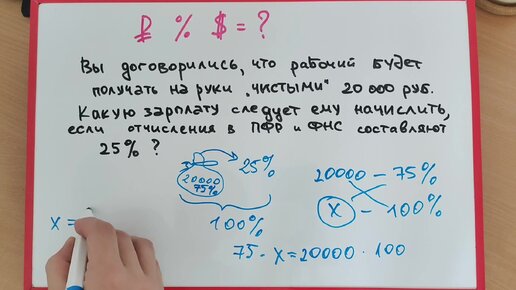 ₽ % $ = ?
Вы договорились, что рабочий будет
получать на руки "чистыми" 20 000 руб.
Какую зарплату следует ему начислить,
если отчисления в ПФР и ФНС составляют
25% ?
20000
75%
25%
100%
20000 – 75%
x – 100%
75 · x = 20000 · 100
x =